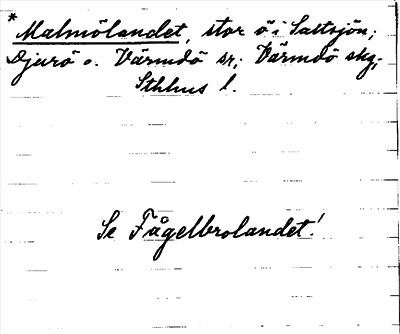 * Malmölandet, stor ö i Saltsjön;
Djurö o. Värmdö sr; Värmdö skg;
Sthlms l.
Se Fågelbrolandet!